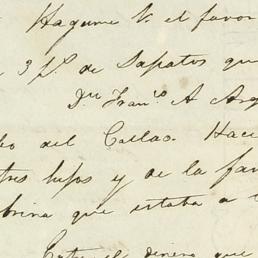 Hagame V. el favor
3 p.s de Sapatos que
Dn. Franco A Arg
del Callao. Hace
tres hijos y de la fam
brina que estaba a
Entre el dinero que